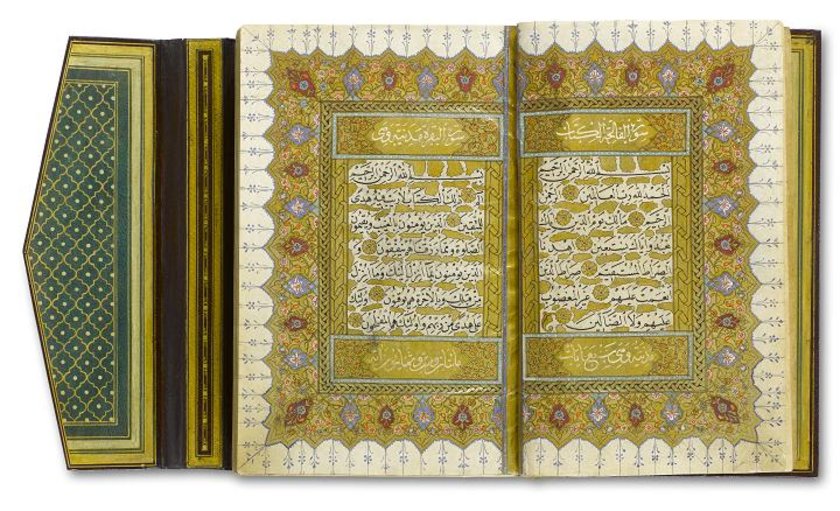 سورة الفاتحة الكتاب
بسم الله الرحمن الرحيم
الحمد لله رب العالمين الرحمن
الرحيم مالك يوم الدين اياك
نعبد واياك نستعين اهدنا
الصراط المستقيم صراط الذين
انعمت عليهم غير المغضوب
عليهم ولا الضالين
وهي سبع ايات
سورة البقرة مدنية وهي
بسم الله الرحمن الرحيم
الم ذلك الكتاب لا ريب فيه هدى
للمتقين الذين يؤمنون بالغيب ويقيمون
الصلوة ومما رزقناهم ينفقون و
الذين يؤمنون بما انزل اليك وما انزل
من قبلك وبالاخرة هم يوقنون اولئك
على هدى من ربهم واولئك هم المفلحون
مائتان وثمانون اية